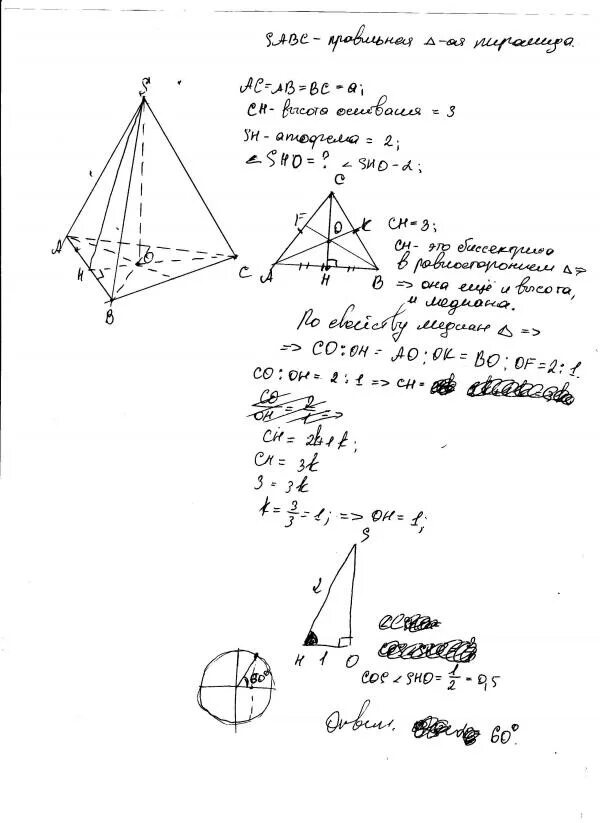 SABC - правильная Δ-ая пирамида.
AC=AB=BC=a;
CH - высота основания = 3
SH - апофема = 2;
∠SHO=? ∠SHO-2;
S
A
H
O
B
C
C
F
O
K
A
H
B
CH=3;
CH - это биссектриса
в равностороннем Δ =>
=> она ещё и высота,
и медиана.
По свойству медиан Δ =>
=> CO:OH = AO:OK = BO:OF=2:1.
CO:OH=2:1 => CH=
CO/OH = 2/1 =>
CH = 2k+k;
CH = 3k
3 = 3k
k = 3/3 = 1; => OH = 1;
S
2
H 1 O
cos∠SHO = 1/2 = 0,5
60°
Ответ. 60°.